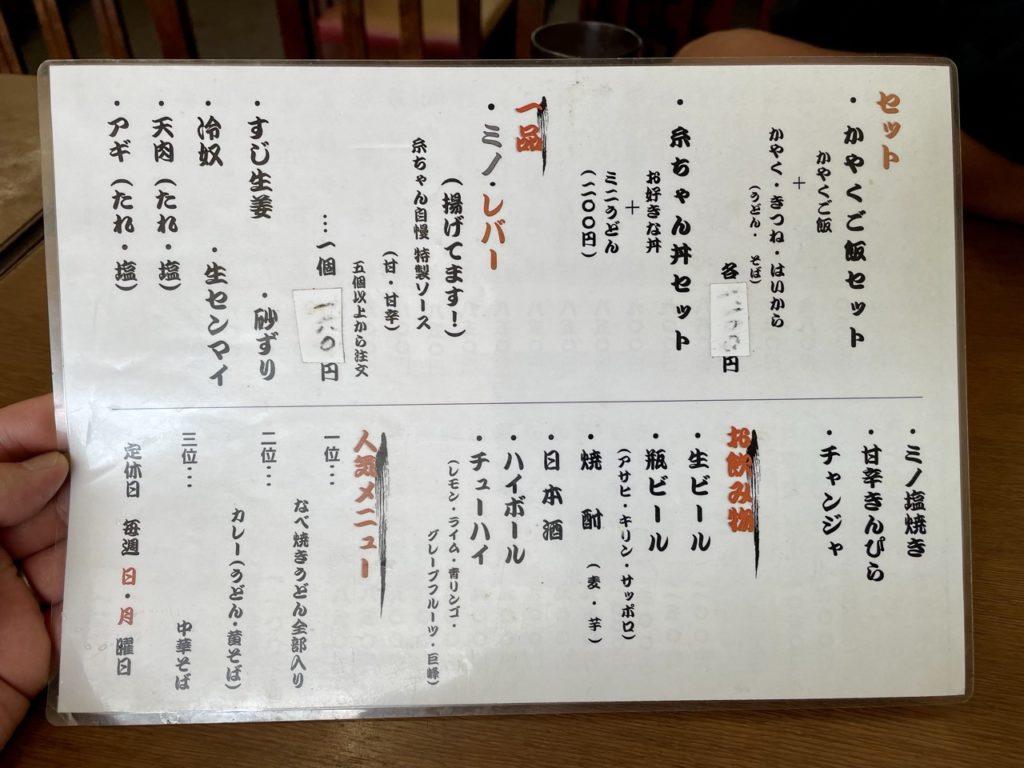 セット
・かやくご飯セット
かやくご飯
＋
かやく・きつね・はいから
(うどん・そば)
各
円
・糸ちゃん丼セット
お好きな丼
＋
ミニうどん
(一一〇〇円)
一品
・ミノ・レバー
(揚げてます！)
糸ちゃん自慢 特製ソース
(甘・甘辛)
五個以上から注文
…一個 一八〇円
・すじ生姜 ・砂ずり
・冷奴 ・生センマイ
・天肉(たれ・塩)
・アギ(たれ・塩)
・ミノ塩焼き
・甘辛きんぴら
・チャンジャ
お飲み物
・生ビール
・瓶ビール
(アサヒ・キリン・サッポロ)
・焼酎 (麦・芋)
・日本酒
・ハイボール
・チューハイ
(レモン・ライム・青リンゴ・
グレープフルーツ・巨峰)
人気メニュー
一位…
なべ焼きうどん全部入り
二位…
カレー(うどん・黄そば)
三位…
中華そば
定休日 毎週 日・月 曜日